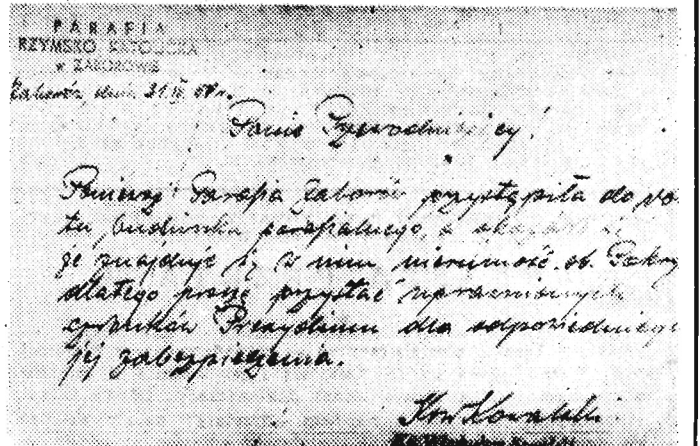 PARAFIA
RZYMSKO KATOLICKA
w ZABOROWIE
Zaborów, dnia 21.IV.
Panie Przewodniczący!
Ponieważ Parafia Zaborów przystąpiła do
budynku parafialnego, a okazało się
że znajduje się w nim nieruchomość ob.
dlatego proszę przysłać uprawnionych
członków Prezydium dla odpowiedniego
jej zabezpieczenia.
Kowalski